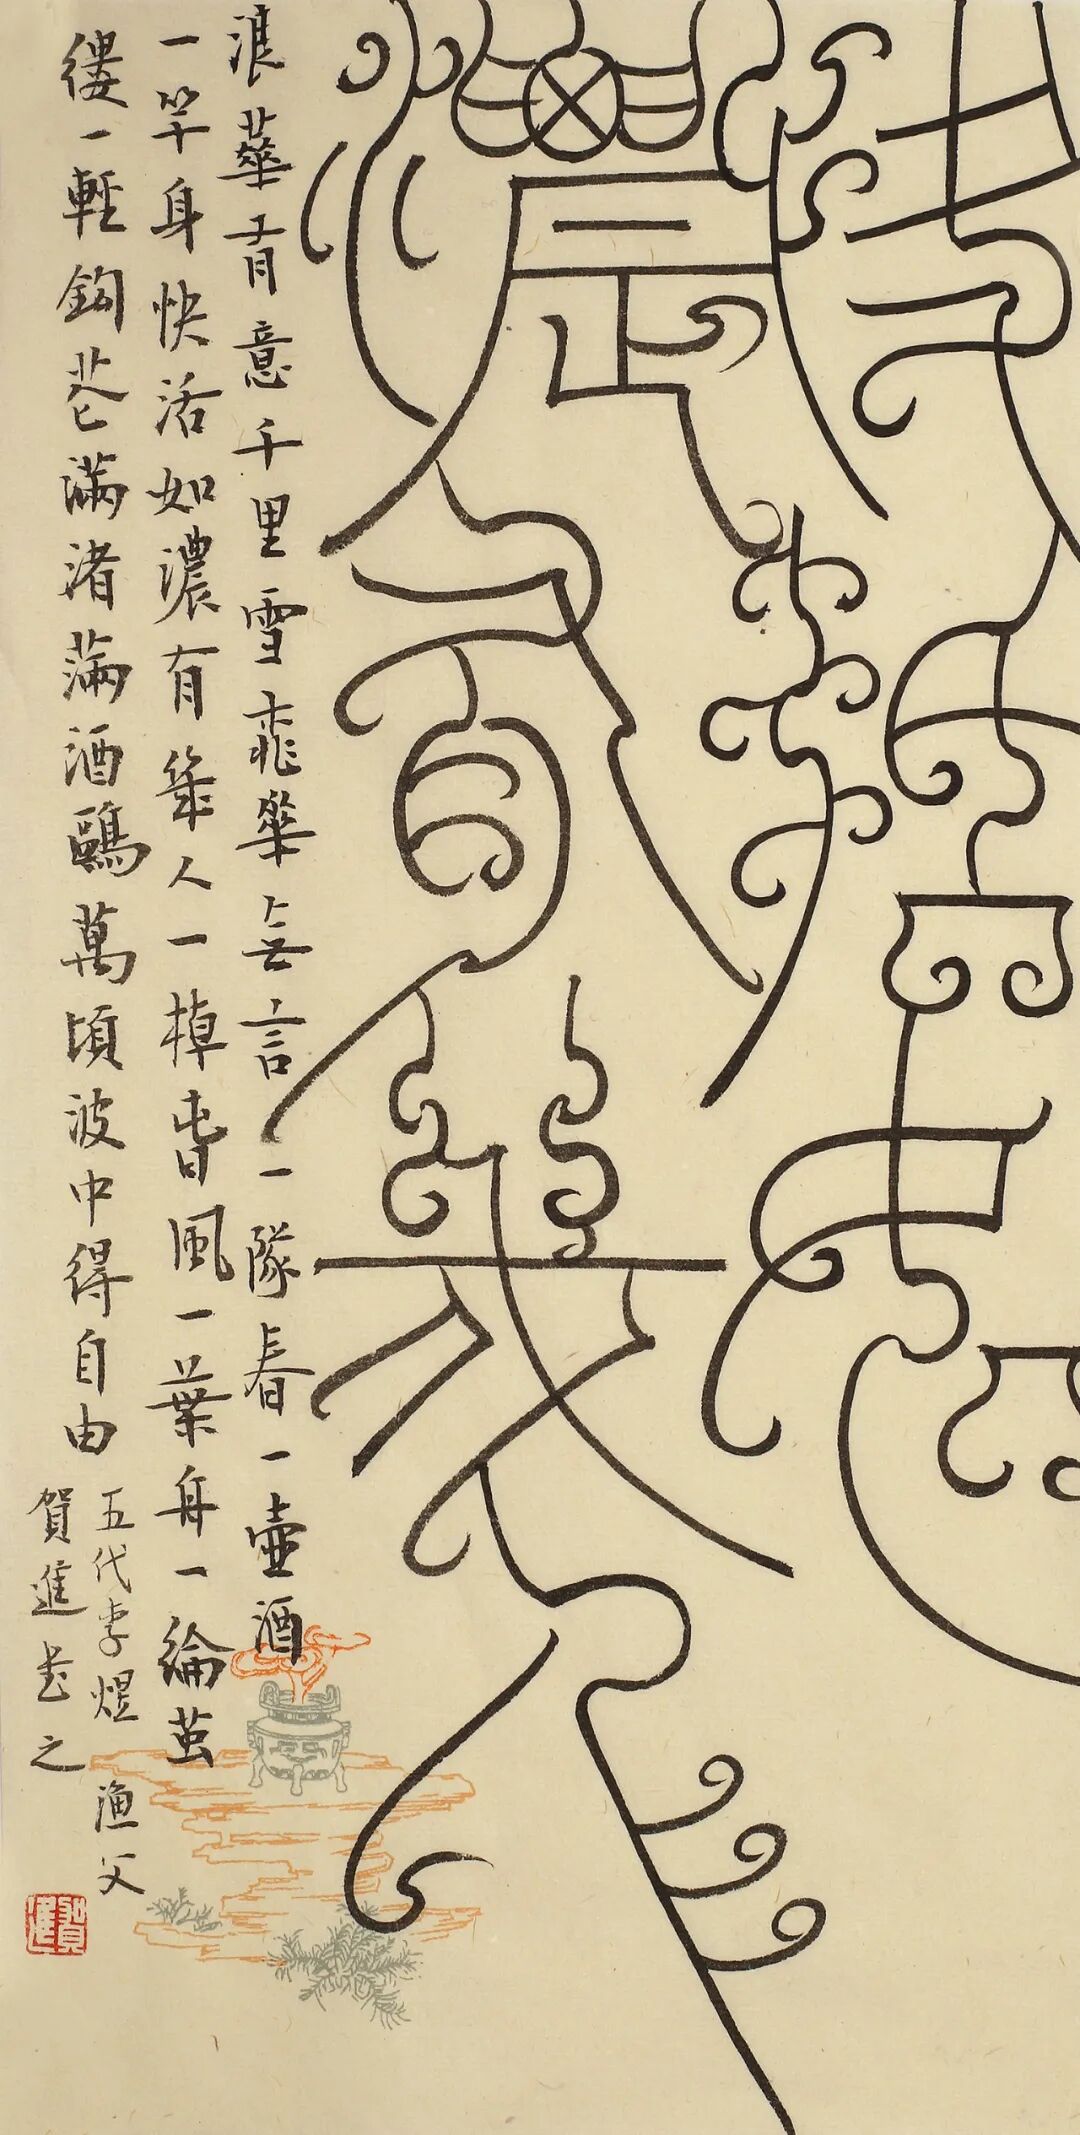 濃有幾人
浪華有意千里雪桃華無言一隊春一壺酒
一竿身快活如濃有幾人一棹春風一葉舟一綸茧
縷一輕鈎花滿渚滿酒鷗萬頃波中得自由
五代李煜 渔父
賀進書之
賀進